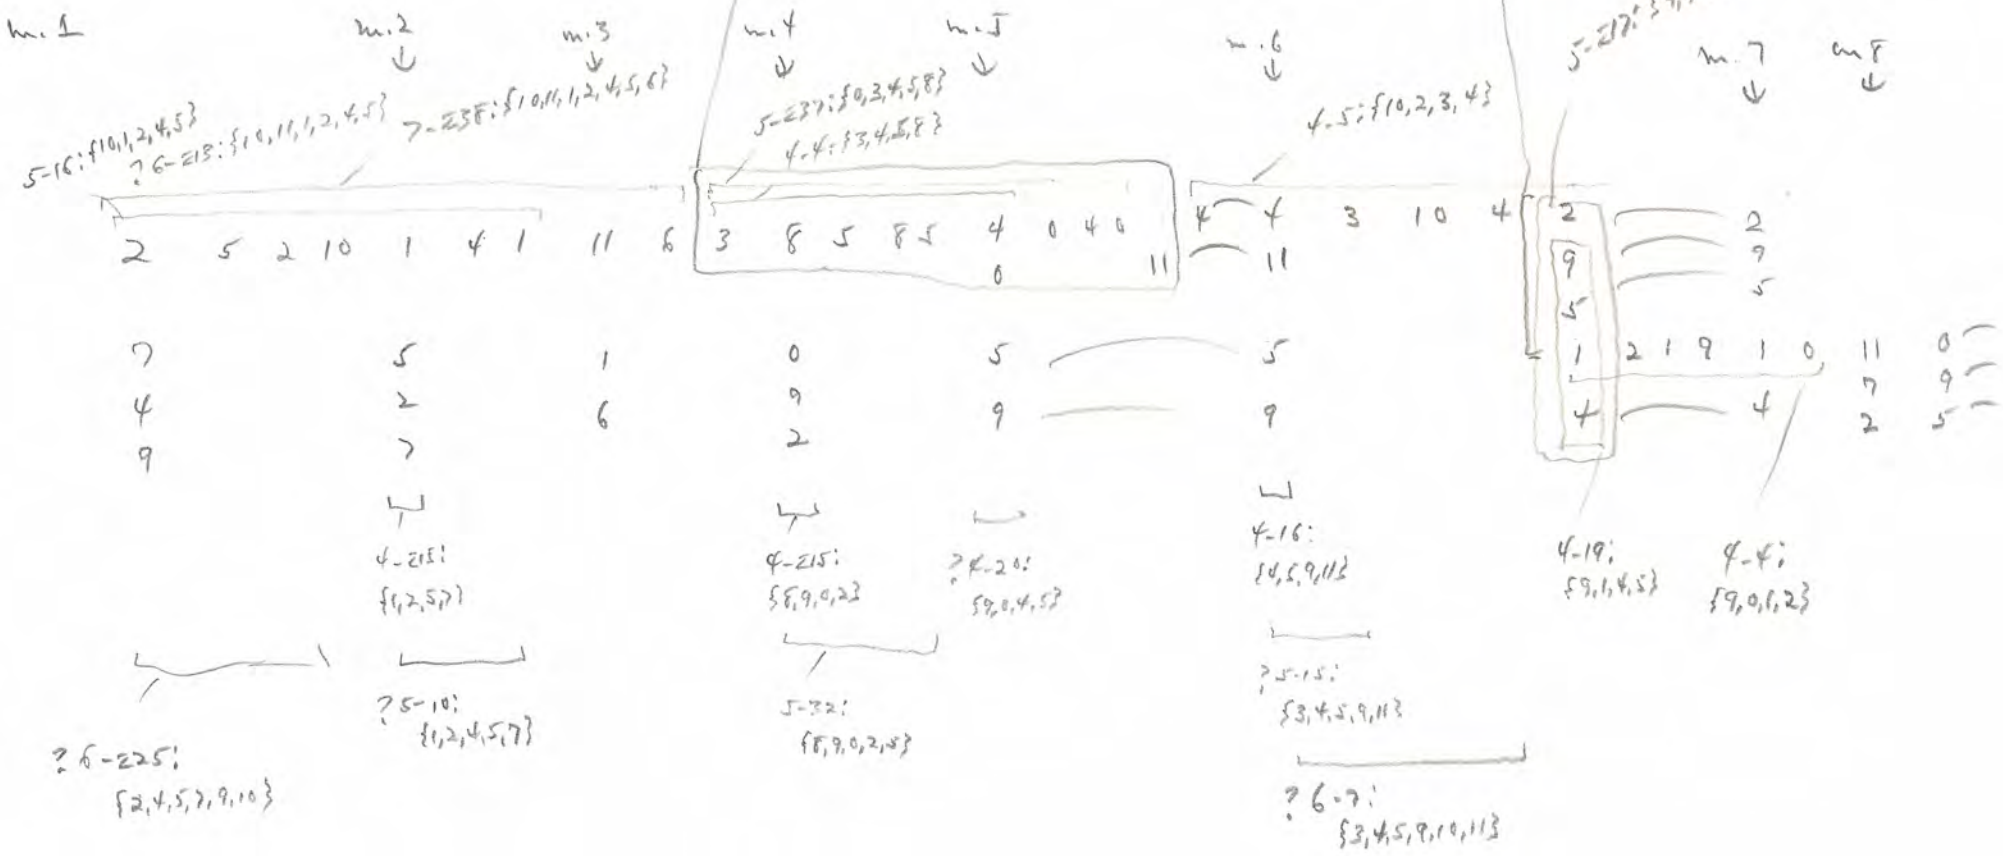 m. 1 m.2 m.3 m.4 m.5 m.6 m.7 m 8
↓ ↓ ↓ ↓ ↓ ↓ ↓
5-16: {10,1,2,4,5}
? 6-z13: {10,11,1,2,4,5}
7-z38: {10,11,1,2,4,5,6}
5-z37: {0,3,4,5,8}
4-4: {3,4,5,8}
4-5: {10,2,3,4}
2 5 2 10 1 4 1 11 6 3 8 5 8 5 4 0 4 0 4 4 3 10 4 2 2
0 11 11 9 9
5 5
7 5 1 0 5 5 1 2 1 9 1 0 11 0
4 2 6 9 9 9 4 4 7 9
9 7 2 2 5
4-z15:
{1,2,5,7}
4-z15:
{8,9,0,2}
? 4-20:
{9,0,4,5}
4-16:
{4,5,9,11}
4-19:
{9,1,4,5}
4-4:
{9,0,1,2}
? 6-z25:
{2,4,5,7,9,10}
? 5-10:
{1,2,4,5,7}
5-32:
{8,9,0,2,5}
? 5-15:
{3,4,5,9,11}
? 6-7:
{3,4,5,9,10,11}